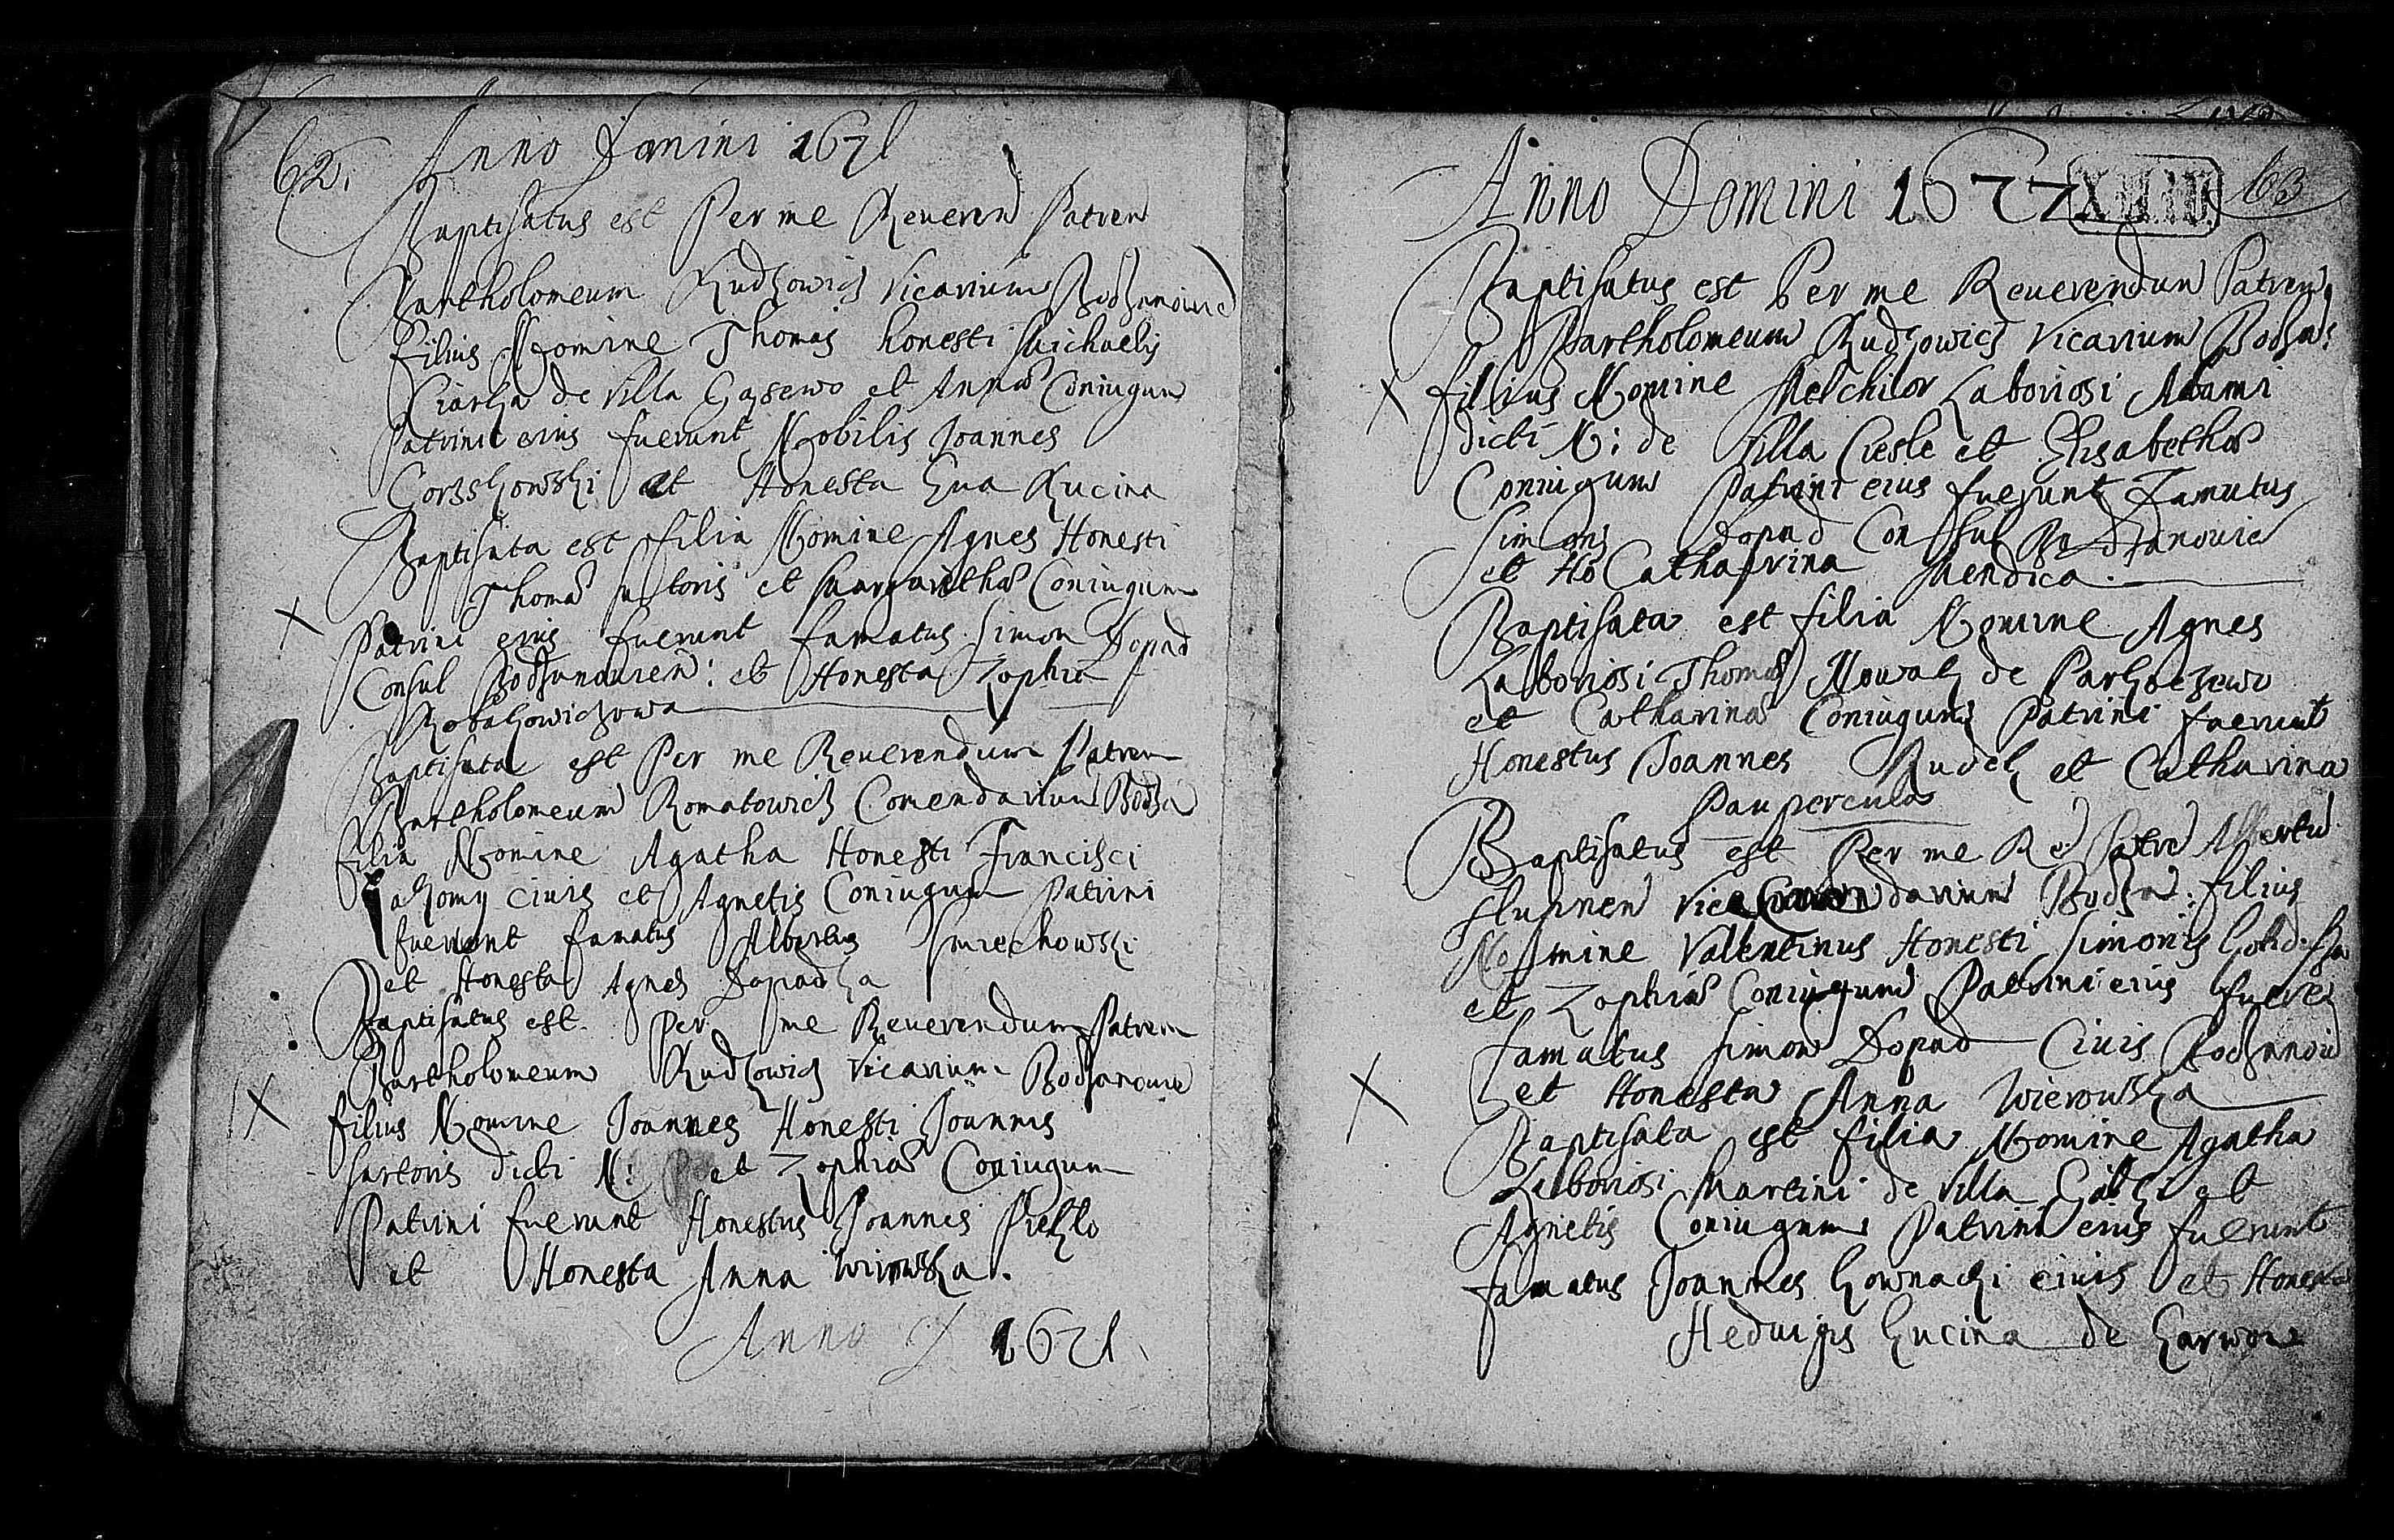 62. Anno Domini 1671
Baptisatus est Per me Reueren Patrem
Bartholomeum Rudzowicz Vicarium Bodzanouie
filius Nomine Thomas honesti Michaelis
de Villa Gąsewo et Anna Coniugum
Patrini eius fuerunt Nobilis Joannes
et Honesta Eua Kucina
Baptisata est filia Nomine Agnes Honesti
Thoma sutoris et Margaritha Coniugum
Patrini eius fuerunt famatus Simon Dopad
Consul Bodzanouien: et Honesta Zophia
Robakowiczowa
Baptisata est Per me Reuerendum Patrem
Bartholomeum Romatowicz Comendarium Bodza
filia Nomine Agatha Honesti Francisci
ciuis et Agnetis Coniugum Patrini
fuerunt famatus Albertus Smiechowski
et Honesta Agnes Dopadka
Baptisatus est Per me Reuerendum Patrem
Bartholomeum Rudzowicz Vicarium Bodzanouie
filius Nomine Joannes Honesti Joannis
sartoris dicti N: et Zophia Coniugum
Patrini fuerunt Honestus Joannes Piekło
et Honesta Anna Wirowska.
Anno D 1671
Anno Domini 1677 63
Baptisatus est Per me Reuerendum Patrem
Bartholomeum Rudzowicz Vicarium Bodzan:
filius Nomine Melchior Laboriosi Adami
dicti N: de Villa Ciesle et Elisabetha
Coniugum Patrini eius fuerunt Famatus
Simon Dopad Consul Bodzanouie
et Ho Catharina Mendica
Baptisata est filia Nomine Agnes
Laboriosi Thoma Nowak de Parkoczewo
et Catharina Coniugum Patrini fuerunt
Honestus Joannes Rudek et Catharina
Paupercula
Baptisatus est Per me Re Patre Albertu
Vice Comendarium Bodzan: filius
Nomine Valentinus Honesti Simonis
et Zophia Coniugum Patrini eius fuere
famatus Simon Dopad Ciuis Bodzanou
et Honesta Anna Wierowska
Baptisata est filia Nomine Agatha
Laboriosi Martini de Villa et
Agnetis Coniugum Patrini eius fuerunt
famatus Joannes Kownacki ciuis et Honesta
Heduigis Kucina de Garwone